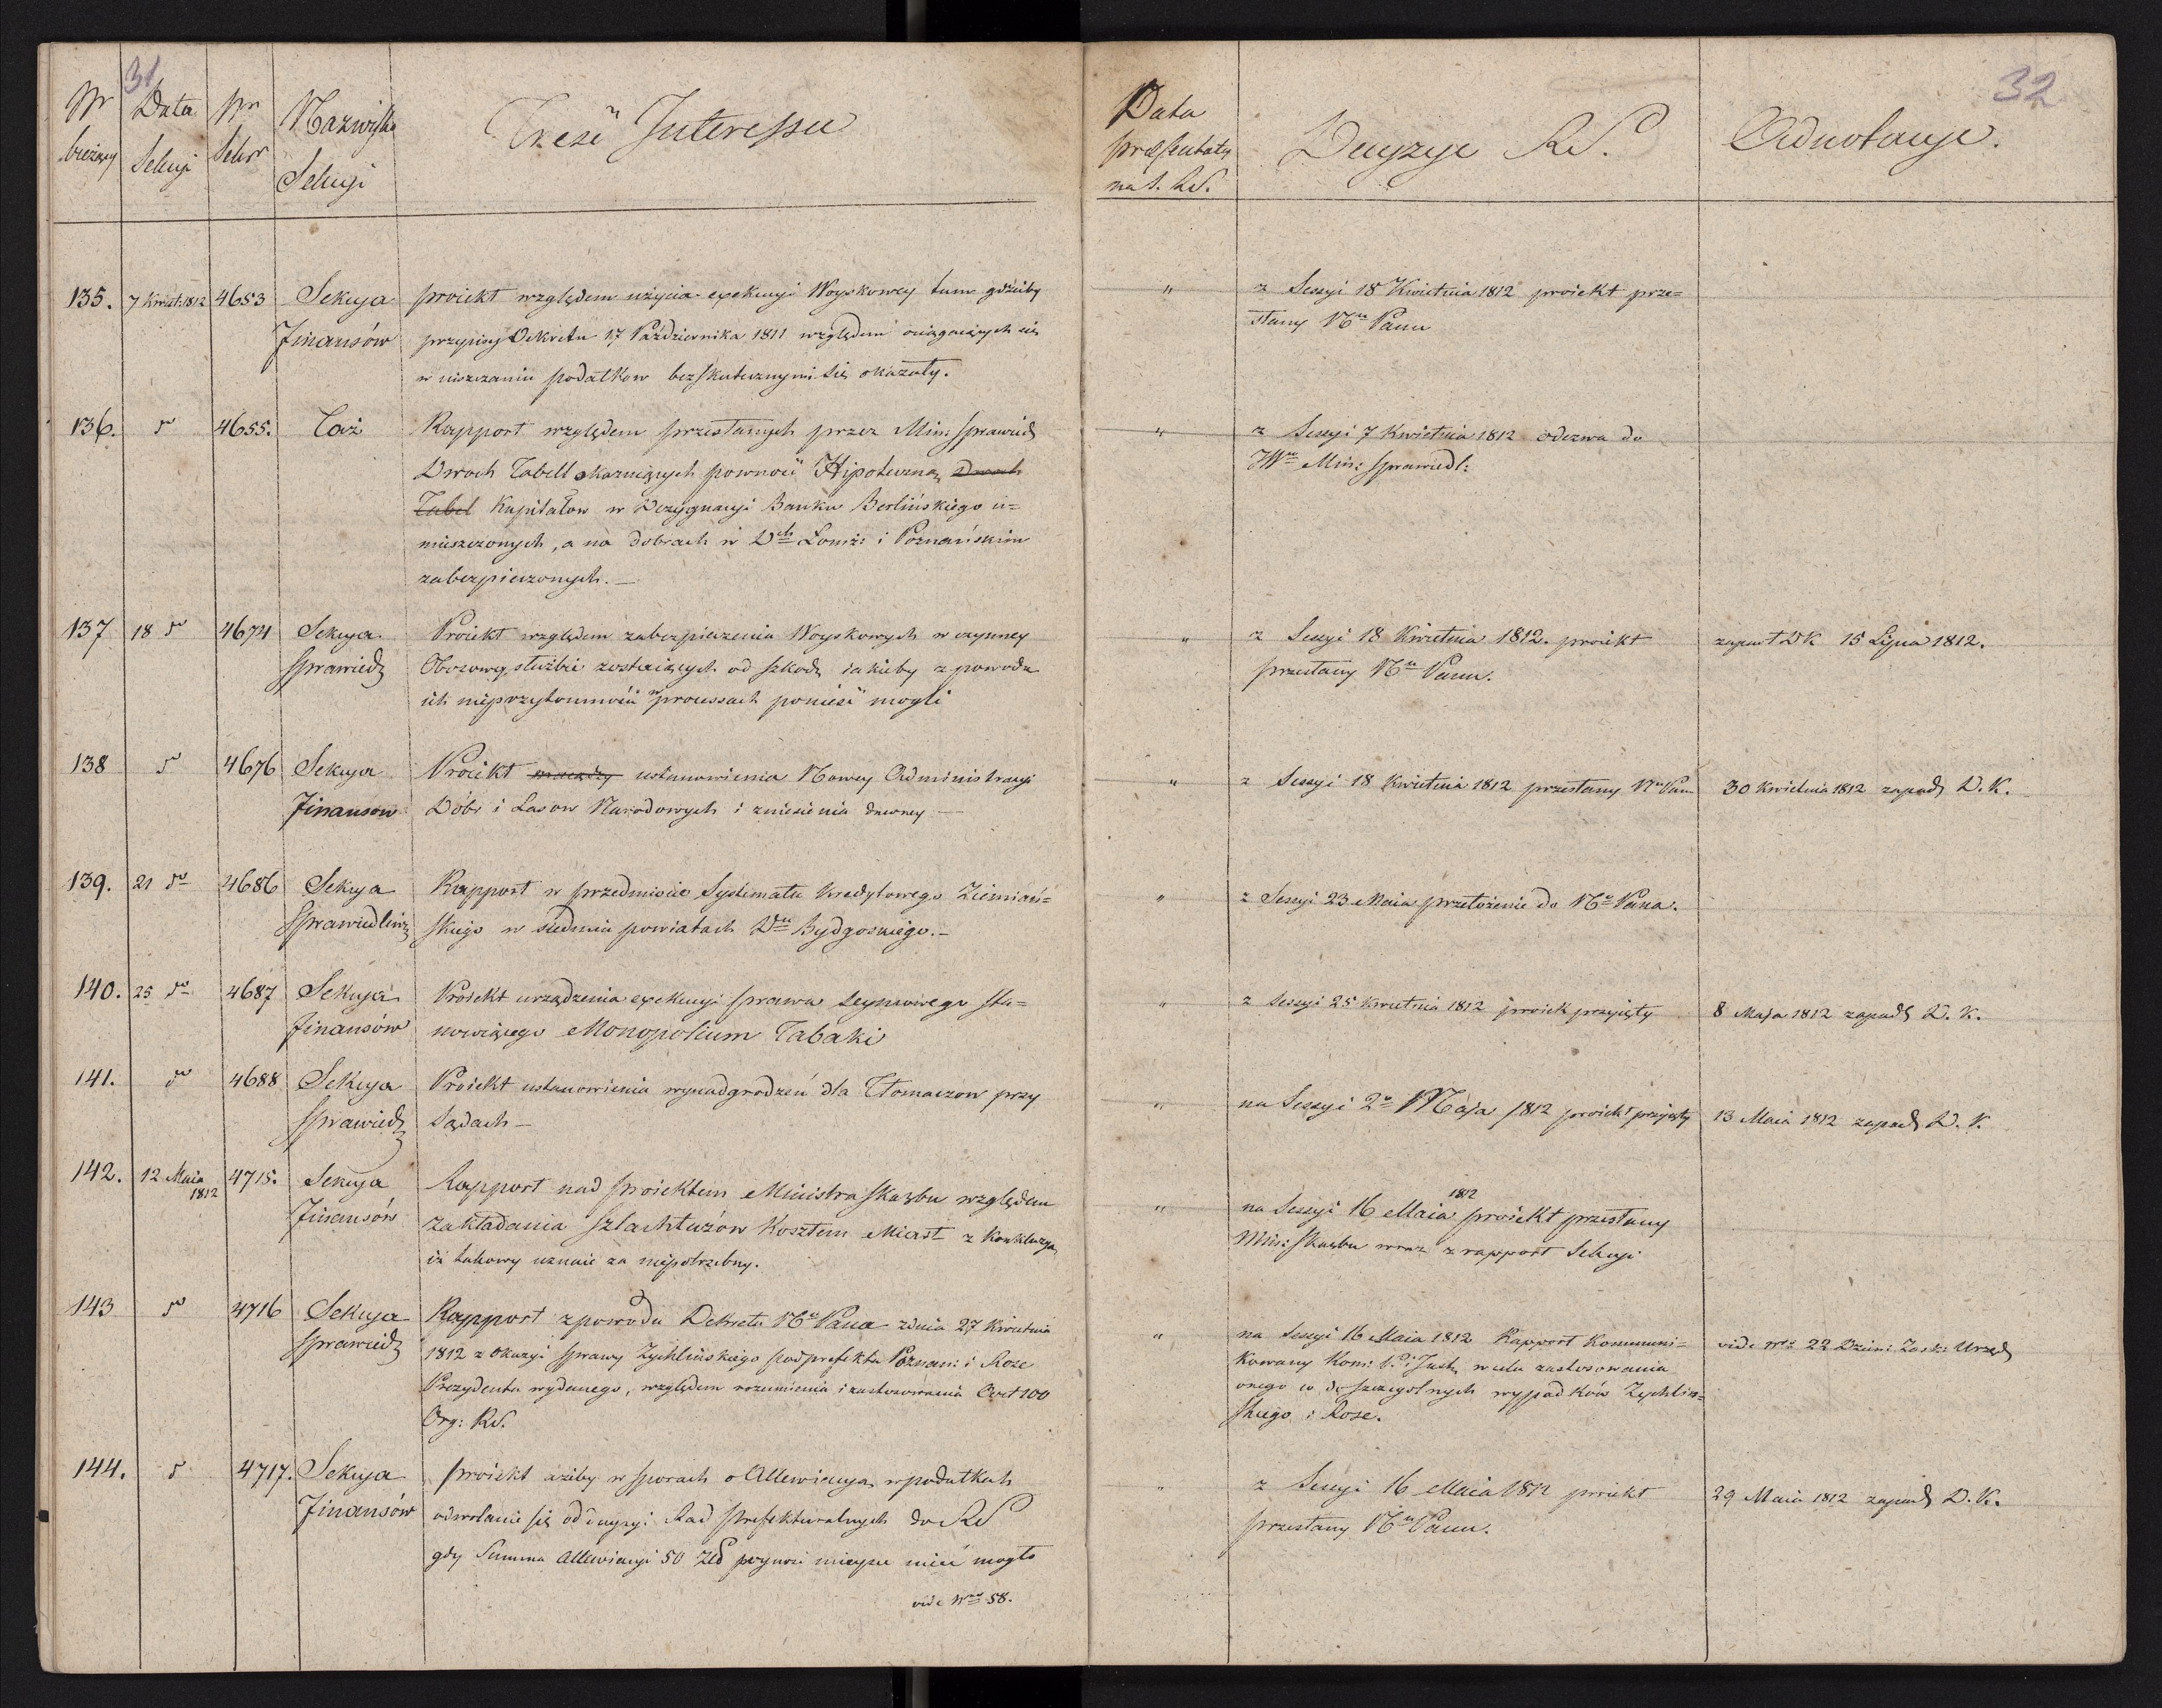 31
Nr bieżący
Data Sekcyi
Nr Sekr
Nazwisko Sekcyi
Treść Interessu
135. 7 Kwiet: 1812 4653 Sekcya Finansów
proiekt względem użycia exekucyi Woyskowey tam gdzieby
przepisy Dekretu 17 Października 1811 względem ociągaiących się
w uiszczaniu podatkow bezskutecznymi się okazały.
136. do 4655. Taż
Rapport względem przesłanych przez Min: Sprawied
Dwoch Tabell okazuiących pewność Hipoteczną Dwoch
Tabel Kapitałow w Dezygnacyi Banku Berlińskiego u=
mieszczonych, a na dobrach w Dch Łomż: i Poznańskim
zabezpieczonych. —
137 18 do 4674 Sekcya Sprawied
Proiekt względem zabezpieczenia Woyskowych w czynney
Obozowey służbie zostaiących od szkod, iakieby z powodu
ich nieprzytomności w processach ponieść mogli
138 do 4676 Sekcya Finansow
Proiekt ustanowienia Nowey Administracyi
Dóbr i Lasow Narodowych i zniesienia dawney —
139. 21 do 4686 Sekcya Sprawiedliw
Rapport w przedmiocie Systematu Kredytowego Ziemiań=
skiego w siedmiu powiatach Dtu Bydgoskiego. —
140. 25 do 4687 Sekcya Finansów
Proiekt urządzenia exekucyi prawa Seymowego sta=
nowiącego Monopolium Tabaki
141. do 4688 Sekcya Sprawied
Proiekt ustanowienia wynadgrodzeń dla Tłomaczow przy
Sądach —
142. 12 Maia 1812 4715. Sekcya Finansów
Rapport nad proiektem Ministra Skarbu względem
zakładania szlachtuzów Kosztem Miast z Konkluzyą
iż takowy uznaie za niepotrzebny.
143 do 4716 Sekcya Sprawied
Rapport z powodu Dekretu No Pana z dnia 27 Kwietnia
1812 z okazyi sprawy Zychlińskiego podprefekta Poznań: i Rose
Prezydenta wydanego, względem rozumienia i zastosowania Art 100
Org: RS.
144. do 4717. Sekcya Finansów
proiekt ażeby w sporach o Allewiacyą w podatkach
odwołanie się od decyzyi Rad Prefekturalnych do RS
gdy Summa Allewiacyi 50 Złp przynosi mieysce mieć mogło
vide Nro 58.
32
Data præsentaty na S. RS.
Decyzye RS.
Adnotacye.
" z Sessyi 18 Kwietnia 1812 proiekt prze=
słany Nu Panu
" z Sessyi 7 Kwietnia 1812 odezwa do
JWo Min: Sprawiedl:
" z Sessyi 18 Kwietnia 1812. proiekt
przesłany Nu Panu.
zapadł DK 15 Lipca 1812.
" z Sessyi 18 Kwietnia 1812 przesłany Nu Pan
30 Kwietnia 1812 zapadł D. K.
" z Sessyi 23 Maia przełożenie do No Pana.
" z Sessyi 25 Kwietnia 1812 proiekt przyięty
8 Maja 1812 zapadł D. K.
" na Sessyi 2o Maja 1812 proiekt przyięty
13 Maia 1812 zapadł D. K.
" na Sessyi 16 Maia 1812 proiekt przesłany
Min: Skarbu wraz z rapport Sekcyi
" na Sessyi 16 Maia 1812 Rapport Kommuni=
kowany Kom: P. i Just, w celu zastosowania
onego co do szczegolnych wypadków Zychliń=
skiego i Rose.
vide Nro 22 Dzien: Zask: Urzęd
" z Sessyi 16 Maia 1812 proiekt
przesłany Nu Panu.
29 Maia 1812 zapadł D. K.